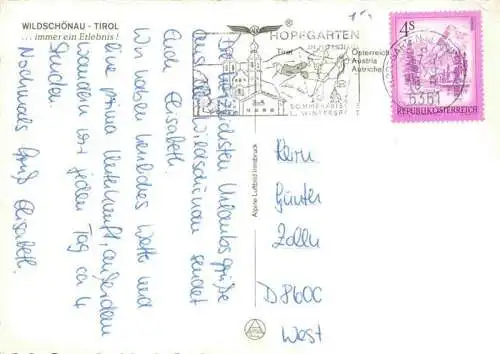 WILDSCHÖNAU - TIROL
... immer ein Erlebnis!
Die herzlichsten Urlaubsgrüße
aus der Wildschönau sendet
Euch Elisabeth.
Wir haben herrliches Wetter und
eine prima Unterkunft, außerdem
wandern wir jeden Tag ca 4
Stunden.
Nochmals Gruß Elisabeth.
HOPFGARTEN
Tirol
Österreich
Austria
Autriche
SOMMERFRISCHE
WINTERSPORT
4S
REPUBLIK ÖSTERREICH
6361
Alpine Luftbild Innsbruck
Herrn
Günter
D 8600
West